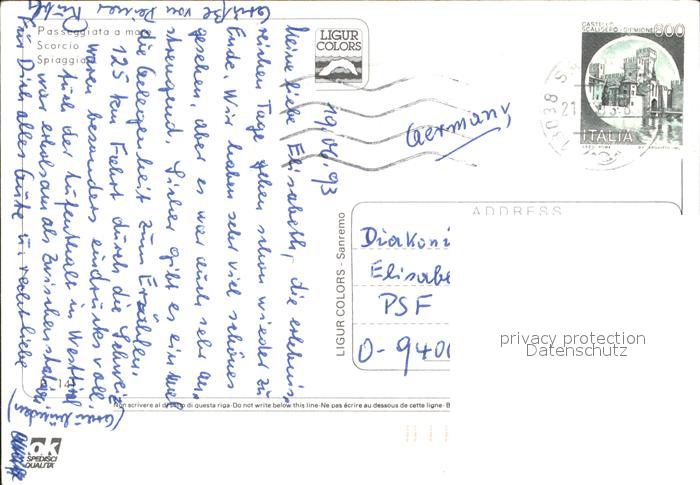 Passeggiata a ma
Scorcio
Spiaggia
LIGUR
COLORS
CASTELLO
SCALIGERO - SIRMIONE
600
ITALIA
21
Germany
ADDRESS
Diakoni
Elisabe
PSF
O-940
privacy protection
Datenschutz
LIGUR COLORS - Sanremo
19.06.93
Meine liebe Elisabeth, die erlebnis-
reichen Tage gehen schon wieder zu
Ende. Wir haben sehr viel schönes
gesehen, aber es war auch sehr an-
strengend. Sicher gibt es einmal
die Gelegenheit zum Erzählen.
125 km Fahrt durch die Schweiz
waren besonders eindrucksvoll.
Auch der Aufenthalt in Westtirol
war erholsam als Zwischenstation
Für Dich alles Gute u. recht liebe
Grüße von Deiner
Non scrivere al di sotto di questa riga-Do not write below this line-Ne pas écrire au dessous de cette ligne-B
14
ok
SPEDISCI
QUALITÀ